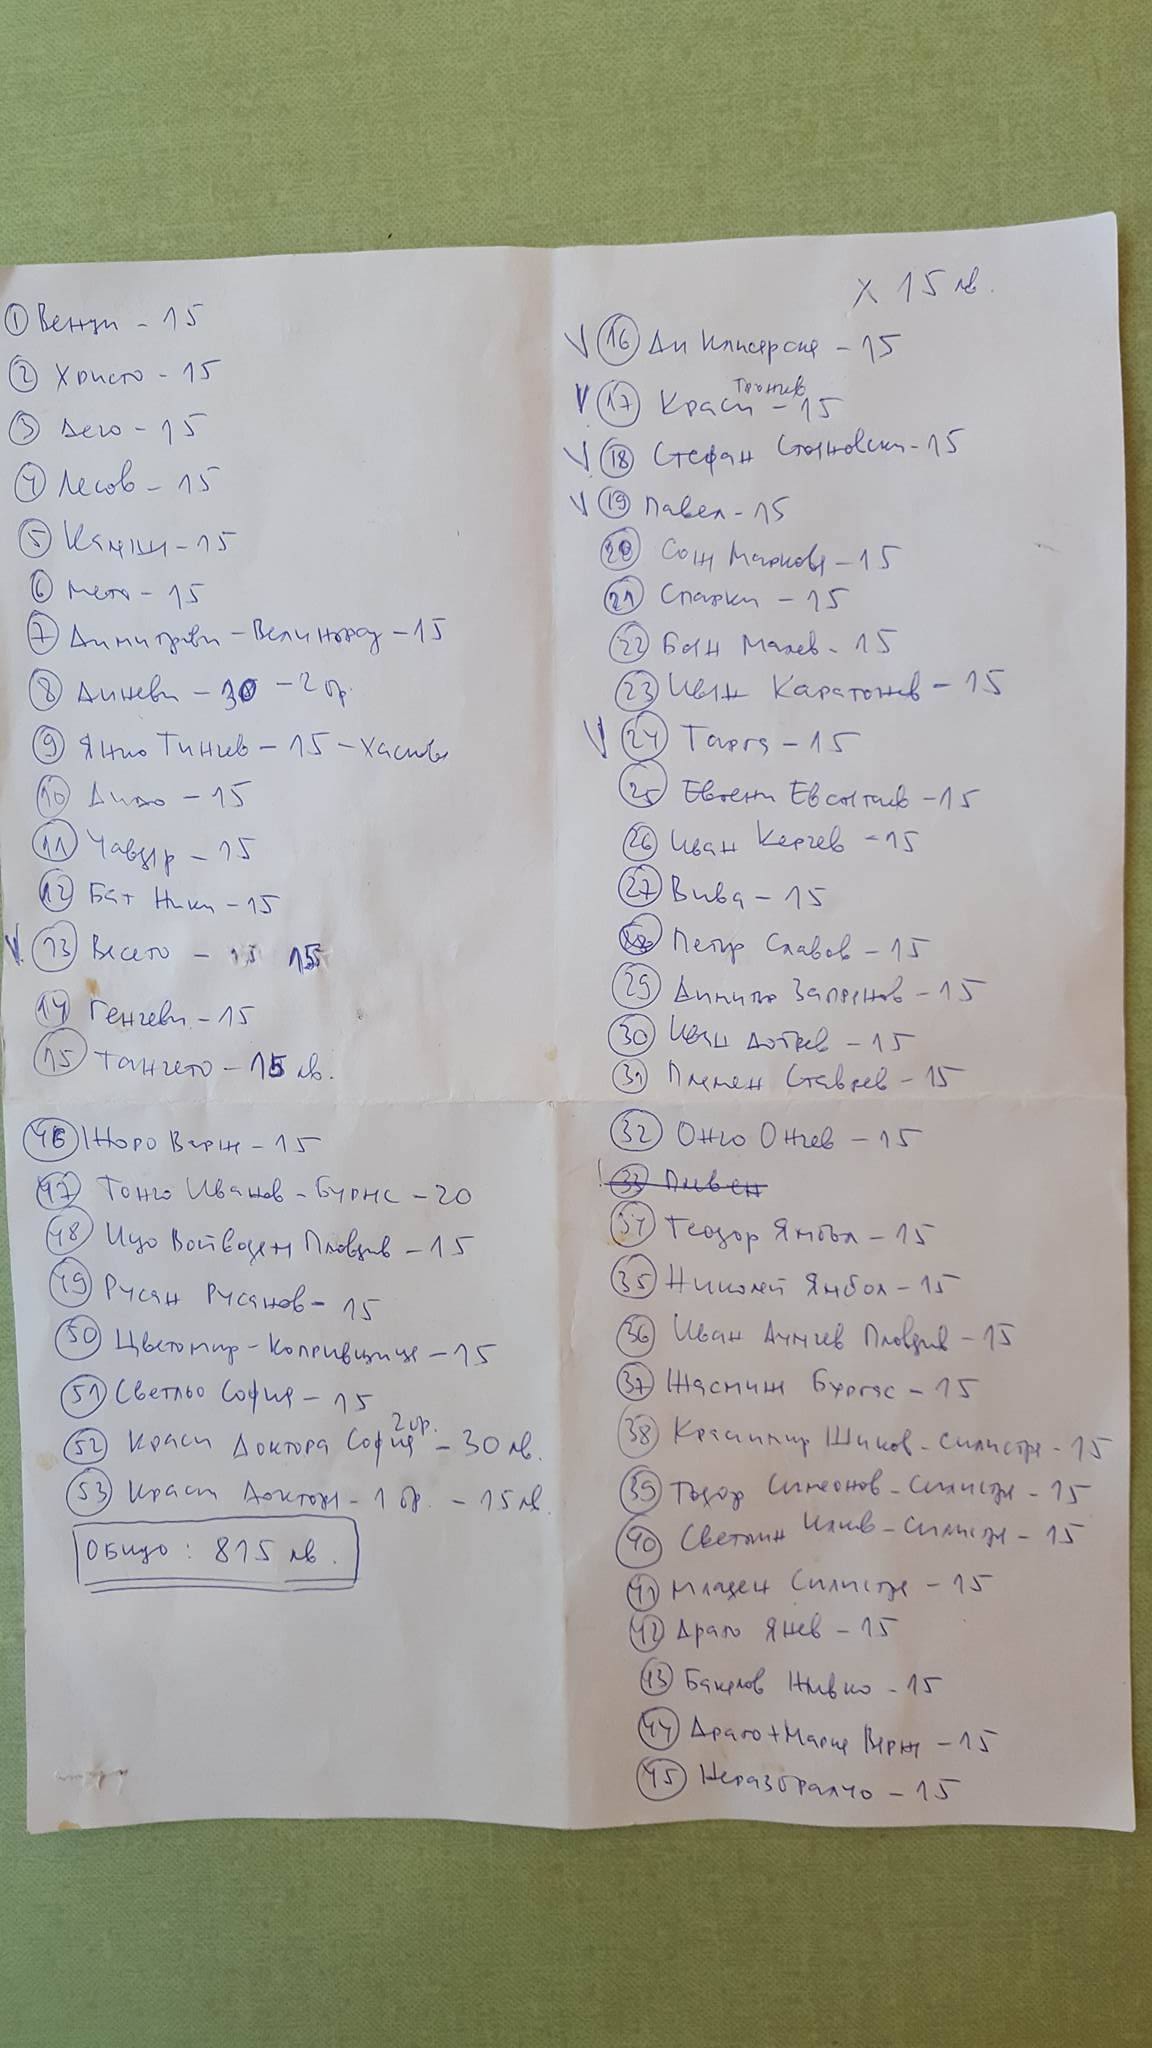 ① Венци - 15
② Христо - 15
③ Део - 15
④ Лесов - 15
⑤ - 15
⑥ Мето - 15
⑦ Димитрови - Велинград - 15
⑧ Диневи - 30 - 2 бр.
⑨ Янко Тинчев - 15 -
⑩ Дидо - 15
⑪ Чавдър - 15
⑫ Бат Ники - 15
V ⑬ Весето - 15 15
⑭ Генчеви - 15
⑮ Танчето - 15 лв.
㊻ Жоро Варна - 15
㊼ Тончо Иванов - Бургас - 20
㊽ Ицо Войводен Пловдив - 15
㊾ Русан Русанов - 15
㊿ Цветомир - Копривщица - 15
51 Светльо София - 15
52 Краси Доктора София 2 бр. - 30 лв.
53 Краси Доктора - 1 бр. - 15 лв.
Общо: 815 лв.
X 15 лв.
V ⑯ Ди - 15
V ⑰ Краси - 15
V ⑱ Стефан Стояновски - 15
V ⑲ Павел - 15
⑳ Соня Маркова - 15
㉑ Спарки - 15
㉒ Боян Малев - 15
㉓ Иван Каратонев - 15
V ㉔ - 15
㉕ Евгени Евстатиев - 15
㉖ Иван Керчев - 15
㉗ Вива - 15
㉘ Петър Славов - 15
㉙ Димитър Запрянов - 15
㉚ Иван - 15
㉛ Пламен Ставрев - 15
㉜ Ончо Ончев - 15
㉝ Плевен
㉞ Теодор Ямбол - 15
㉟ Николай Ямбол - 15
㊱ Иван Дучев Пловдив - 15
㊲ Жасмин Бургас - 15
㊳ Красимир Шиков - Силистра - 15
㊴ Тодор Симеонов - Силистра - 15
㊵ Светлин Илиев - Силистра - 15
㊶ Младен Силистра - 15
㊷ Драго Янев - 15
㊸ Бакалов Живко - 15
㊹ Драго + Мария Варна - 15
㊺ Неразбрано - 15